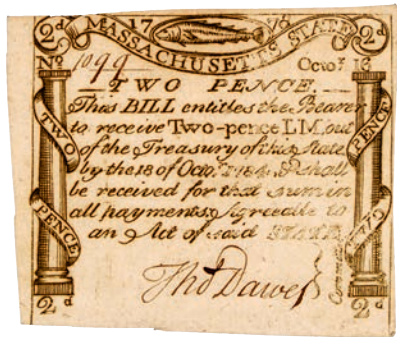 2d 17 78 2d
MASSACHUSETTS STATE
No 1099 Octor. 16
TWO PENCE.
This BILL entitles the Bearer
to receive Two-pence L.M. out
of the Treasury of this State
by the 18 of Octor. 1784. & shall
be received for that sum in
all payments, Agreeable to
an Act of said STATE
Thos Dawes
TWO
PENCE
PENCE
TWO
2d
2d